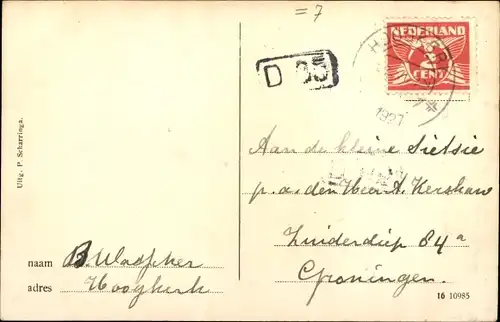 = 7
NEDERLAND
2
CENT
D 35
1927
Aan de kleine Sietsie
p.a. den Heer A. Kershaw
Zuiderdiep 84a
Groningen.
Uitg. P. Scharringa.
naam B. Wladpker
adres Hoogkerk
16 10985